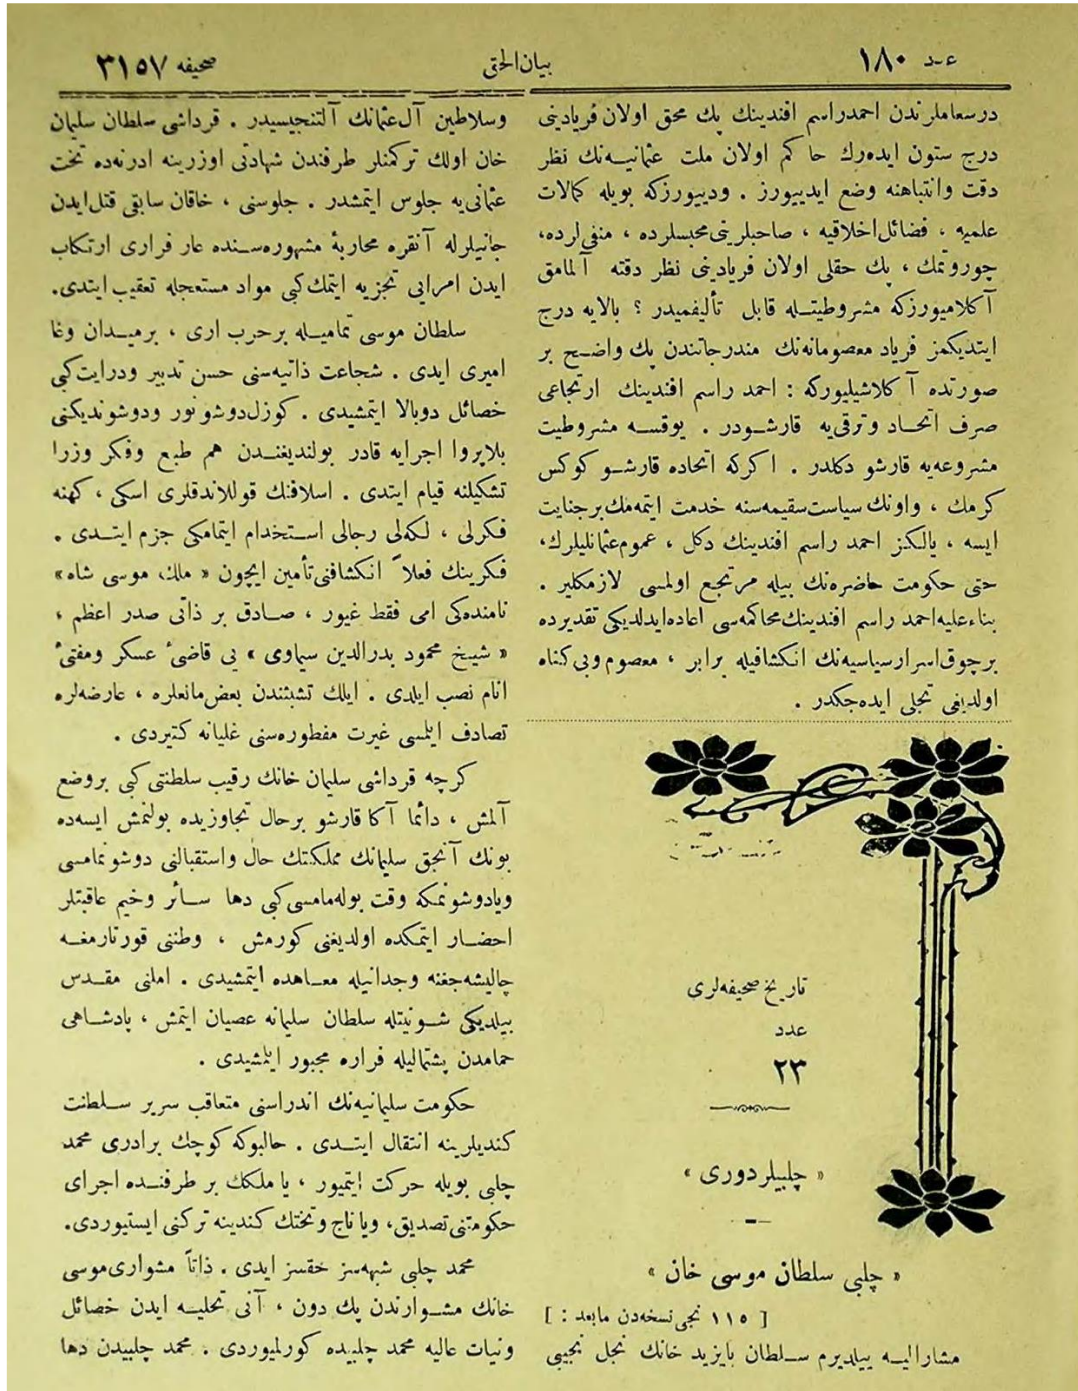 عدد ١٨٠
بيان‌الحق
صحيفه ٣١٥٧
درسعاملرندن احمدراسم افندينك پك محق اولان فريادينى
درج ستون ايده‌رك حاكم اولان ملت عثمانيه‌نك نظر
دقت وانتباهنه وضع ايدييورز . ودييورزكه بويله كمالات
علميه ، فضائل‌اخلاقيه ، صاحبلرينى‌محبسلرده ، منفى‌لرده،
چوروتمك ، پك حقلى اولان فريادينى نظر دقته آلمامق
آكلاميورزكه مشروطيتله قابل تأليفميدر ؟ بالايه درج
ايتديكمز فرياد معصومانه‌نك مندرجاتندن پك واضح بر
صورتده آكلاشيليوركه : احمد راسم افندينك ارتجاعى
صرف اتحاد وترقى‌يه قارشودر . يوقسه مشروطيت
مشروعه‌يه قارشو دكلدر . اكركه اتحاده قارشو كوكس
كرمك ، واونك سياست‌سقيمه‌سنه خدمت ايتمه‌مك‌برجنايت
ايسه ، يالكنز احمد راسم افندينك دكل ، عموم‌عثمانليلرك،
حتى حكومت حاضره‌نك بيله مرتجع اولمسى لازمكلير .
بناءعليه‌احمد راسم افندينك‌محاكمه‌سى اعاده‌ايدلديكى تقديرده
برچوق‌اسرارسياسيه‌نك انكشافيله برابر ، معصوم وبى‌كناه
اولديغى تجلى ايده‌جكدر .
تاريخ صحيفه‌لرى
عدد
٢٣
« چلبيلردورى »
« چلبى سلطان موسى خان »
[ ١١٥ نجى‌نسخه‌دن مابعد : ]
مشاراليه ييلديرم سلطان بايزيد خانك نجل نجيبى
وسلاطين آل‌عثمانك آلتنجيسيدر . قرداشى سلطان سليمان
خان اولك تركمنلر طرفندن شهادتى اوزرينه ادرنه‌ده تخت
عثمانى‌يه جلوس ايتمشدر . جلوسنى ، خاقان سابقى قتل‌ايدن
جانيلرله آنقره محاربهٔ مشهوره‌سنده عار فرارى ارتكاب
ايدن امرايى تجزيه ايتمك‌كبى مواد مستعجله تعقيب ايتدى.
سلطان موسى تماميله برحرب ارى ، برميدان وغا
اميرى ايدى . شجاعت ذاتيه‌سنى حسن تدبير ودرايت‌كبى
خصائل دوبالا ايتمشيدى . كوزل‌دوشونور ودوشونديكنى
بلاپروا اجرايه قادر بولنديغندن هم طبع وفكر وزرا
تشكيلنه قيام ايتدى . اسلافنك قوللاندقلرى اسكى ، كهنه
فكرلى ، لكه‌لى رجالى استخدام ايتمامكى جزم ايتدى .
فكرينك فعلاً انكشافنى‌تأمين ايچون « ملك موسى شاه»
نامنده‌كى امى فقط غيور ، صادق بر ذاتى صدر اعظم ،
« شيخ محمود بدرالدين سيماوى » يى قاضئ عسكر ومفتئ
انام نصب ايلدى . ايلك تشبثندن بعض‌مانعلره ، عارضه‌لره
تصادف ايلمسى غيرت مفطوره‌سنى غليانه كتيردى .
كرچه قرداشى سليمان خانك رقيب سلطنتى كبى بروضع
آلمش ، دائما آكا قارشو برحال تجاوزيده بولنمش ايسه‌ده
بونك آنجق سليمانك مملكتك حال واستقبالنى دوشونمامسى
ويادوشونمكه وقت بوله‌مامسى‌كبى دها سائر وخيم عاقبتلر
احضار ايتمكده اولديغنى كورمش ، وطننى قورتارمغه
چاليشه‌جغنه وجدانيله معاهده ايتمشيدى . املنى مقدس
بيلديكى شونيتله سلطان سليمانه عصيان ايتمش ، پادشاهى
حمامدن پشتماليله فراره مجبور ايلمشيدى .
حكومت سليمانيه‌نك اندراسنى متعاقب سرير سلطنت
كنديلرينه انتقال ايتدى . حالبوكه كوچك برادرى محمد
چلبى بويله حركت ايتميور ، يا ملكك بر طرفنده اجراى
حكومتنى‌تصديق، ويا تاج وتختك كندينه تركنى ايستيوردى.
محمد چلبى شبهه‌سز خقسز ايدى . ذاتاً مشوارى‌موسى
خانك مشوارندن پك دون ، آنى تحليه ايدن خصائل
ونيات عاليه محمد چلبيده كورلميوردى . محمد چلبيدن دها